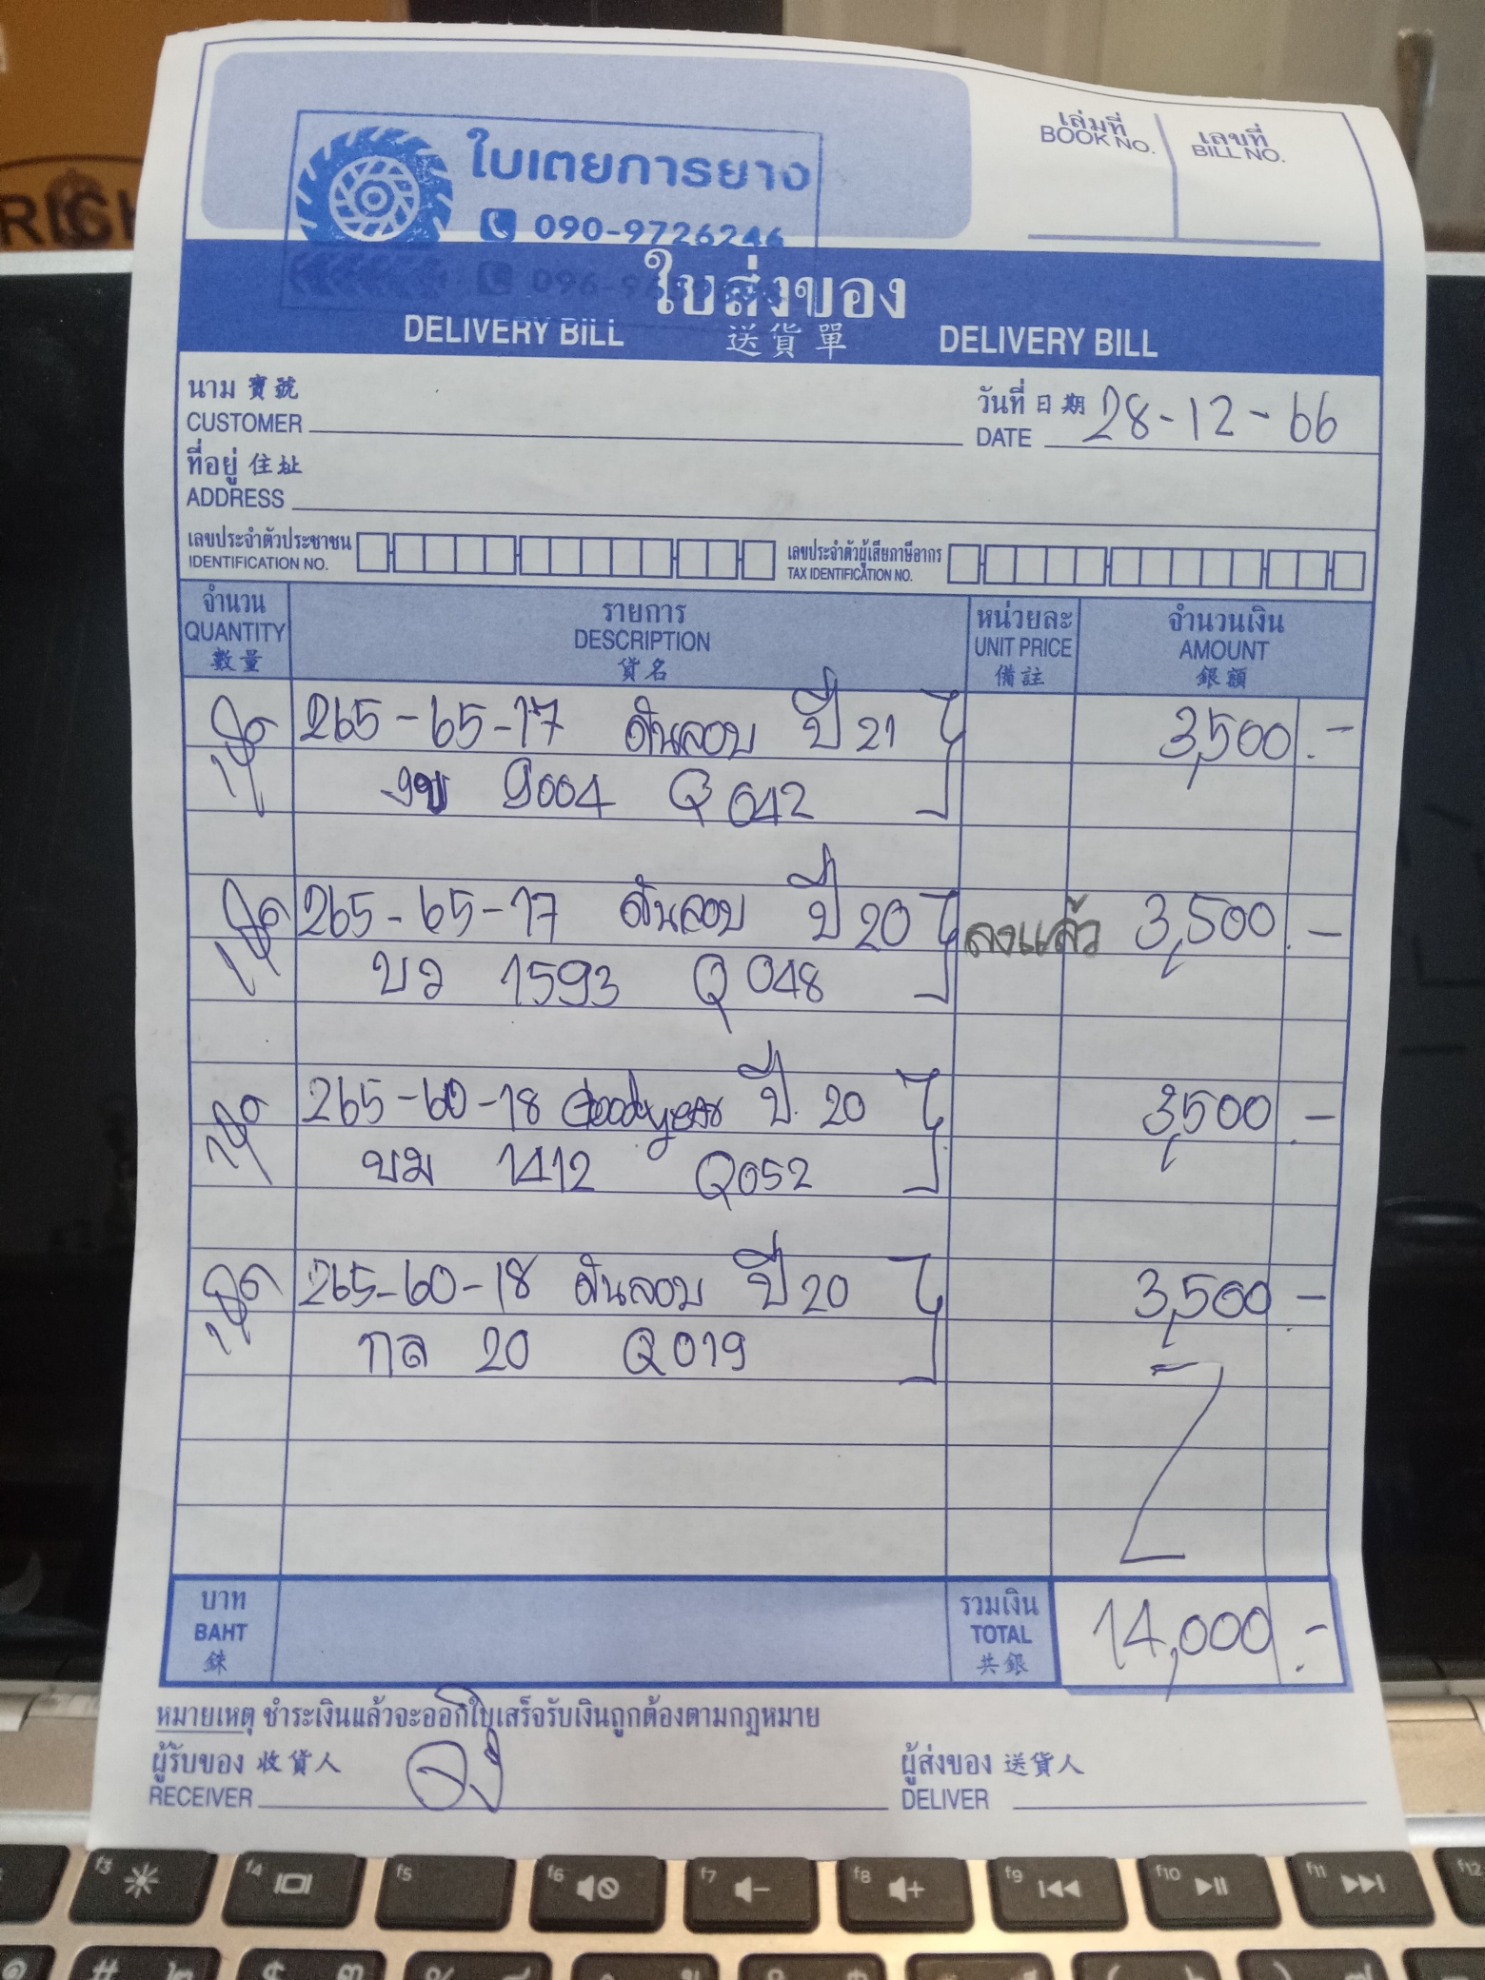 ใบเตยการยาง
090-9726246
เล่มที่ เลขที่
BOOK NO. BILL NO.
ใบส่งของ
DELIVERY BILL 送貨單 DELIVERY BILL
นาม 寶號
CUSTOMER
วันที่ 日期 28-12-66
DATE
ที่อยู่ 住址
ADDRESS
เลขประจำตัวประชาชน
IDENTIFICATION NO.
เลขประจำตัวผู้เสียภาษีอากร
TAX IDENTIFICATION NO.
จำนวน รายการ หน่วยละ จำนวนเงิน
QUANTITY DESCRIPTION UNIT PRICE AMOUNT
數量 貨名 備註 銀額
1ชุด 265-65-17 ดันลอป ปี 21 3,500.-
9004 Q042
1ชุด 265-65-17 ดันลอป ปี 20 ลงแล้ว 3,500.-
บว 1593 Q048
1ชุด 265-60-18 Goodyear ปี 20 3,500.-
ขม 1412 Q052
1ชุด 265-60-18 ดันลอป ปี 20 3,500.-
กล 20 Q019
บาท รวมเงิน
BAHT TOTAL 14,000.-
銖 共銀
หมายเหตุ ชำระเงินแล้วจะออกใบเสร็จรับเงินถูกต้องตามกฎหมาย
ผู้รับของ 收貨人 ผู้ส่งของ 送貨人
RECEIVER DELIVER
f3 f4 f5 f6 f7 f8 f9 f10 f11 f12